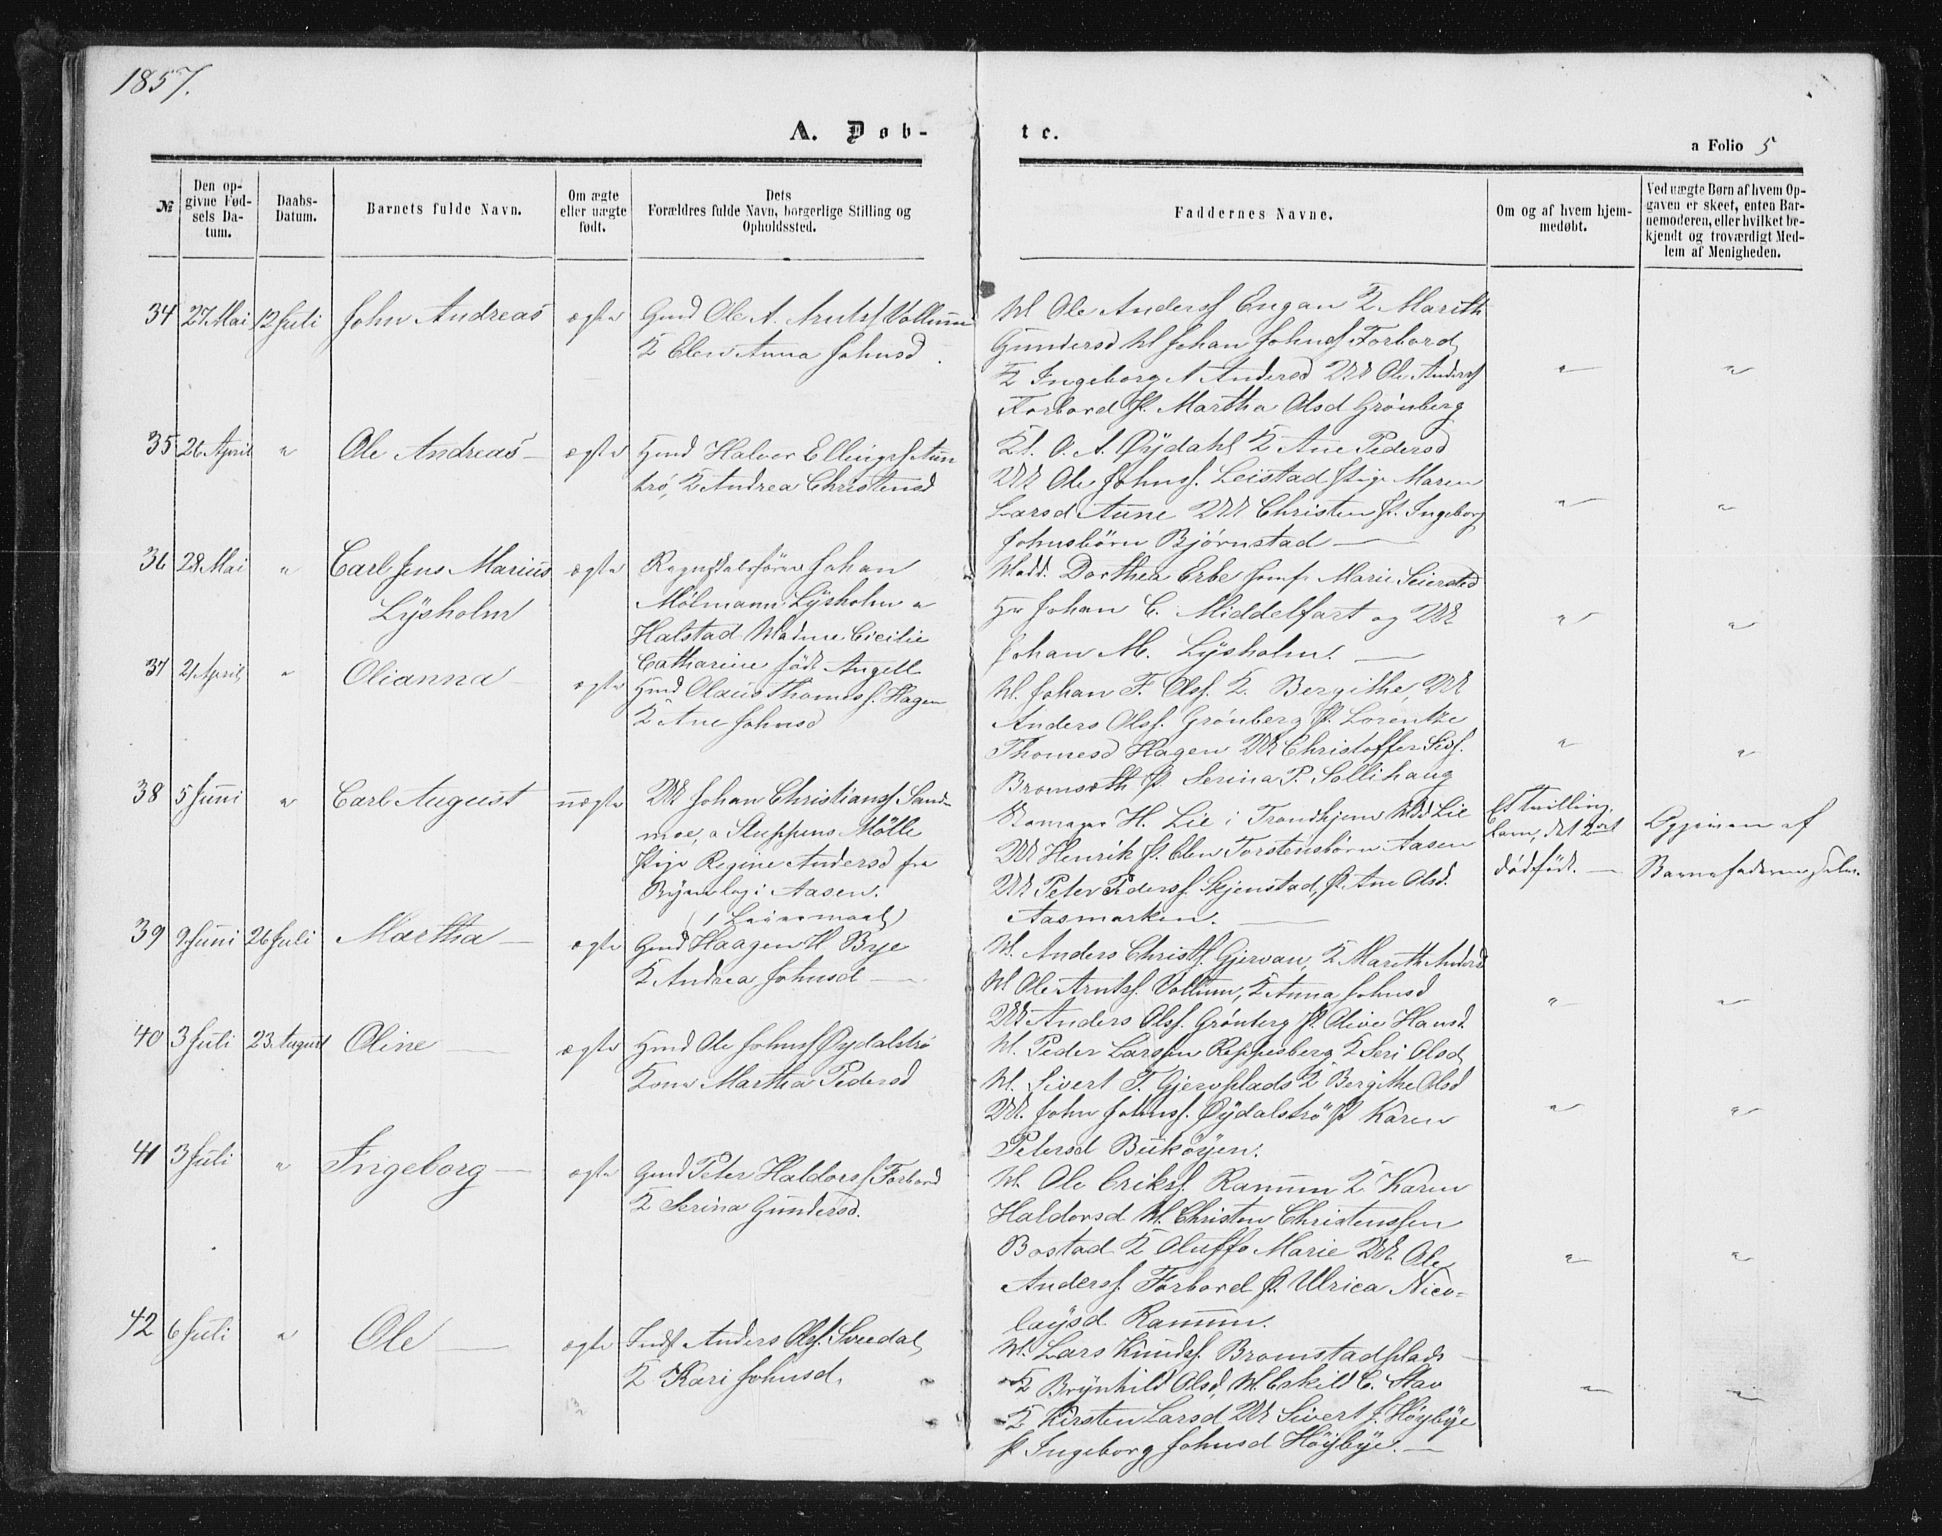 1857.
A. Døb-
te.
a Folio 5
№
Den op-
givne Fød-
sels Da-
tum.
Daabs-
Datum.
Barnets fulde Navn.
Om ægte
eller uægte
født.
Dets
Forældres fulde Navn, borgerlige Stilling og
Opholdssted.
Faddernes Navne.
Om og af hvem hjem-
medøbt.
Ved uægte Børn af hvem Op-
gaven er skeet, enten Bar-
nemoderen, eller hvilket be-
kjendt og troværdigt Med-
lem af Menigheden.
34 27 Mai 12 Juli John Andreas ægte Gmd Ole A. Arntsf Vollum
K Elen Anna Johnsd.
M Ole Andersf Engan K Marith
Gundersd M Johan Johnsf Forbord
K Ingeborg A Andersd Ole Andersf
Forbord P. Martha Olsd Grønberg
" "
35 26 April " Ole Andreas ægte Hmd Halvor Ellingsf Aun
trø, K Andrea Christensd
O. A. Øydahl K Ane Pedersd
Ole Johnsf. Leistad Pige Maren
Larsd Aune Christen P. Ingeborg
Johnsbørn Bjørnstad
" "
36 28 Mai " Carl Jens Marius
Lysholm
ægte Johan
Mølmann Lysholm
Halstad Madme Cicilie
Catharine født Angell
Madd. Dorthea Erbe Jomf. Marie
Hr Johan C. Middelfart og
Johan M. Lysholm.
" "
37 21 April " Olianna ægte Hmd Olaus Thomesf. Hagen
K Ane Johnsd
M. Johan F. Olsf. K. Bergithe,
Anders Olsf. Grønberg P. Lorentze
Thomesd Hagen Christoffer
P. Serina P. Sollihaug
" "
38 5 Juni " Carl August uægte Johan Christiansf Sand-
moe, Sluppens Mølle
Pige Regine Andersd fra
i Aasen.
(1 Leiermaal)
H. Lie i Trondhjem Mdd Lie
Henrik P. Elen Torstensbørn Aasen
Peter Pedersf. Skjenstad, P. Ane Olsd.
Aasmarken.
Et Tvilling
barn, det 2det
dødfødt.
Opgiven af
Barnefaderen
39 9 Juni 26 Juli Martha ægte Gmd Haagen H Bye
K Andrea Johnsd
M. Anders Christsf. Gjervan, K Marith Andersd
M Ole Arntsf. Vollum, K Anna Johnsd
Anders Olsf. Grønberg P. Olive Hansd.
" "
40 3 Juli 23 August Oline ægte Hmd Ole Johnsf Øydalstrø
Kone Martha Pedersd
M. Peder Larssen Reppesberg K Seri Olsd
M. Sivert T. Gjervplads K Bergithe Olsd
John Johnsf. Øydalstrø P Karen
Petersd Bukøyen.
" "
41 3 Juli " Ingeborg ægte Gmd Peter Haldorsf Forbord
K Serina Gundersd.
M. Ole Eriksf. Ramum K Karen
Haldorsd M. Christen Christenssen
Bostad K Oluffa Marie Ole
Andersf. Forbord P. Ulrica Nico-
laysd. Ramum.
" "
42 6 Juli " Ole ægte Inds Anders Olsf. Svedal
K Kari Johnsd.
M. Lars Knudsf. Bromstadplads
K Brynhild Olsd, M. Eskild C. Stav
K Kirsten Larsd Sivert J. Høybye
P Ingeborg Johnsd Høybye.
" "